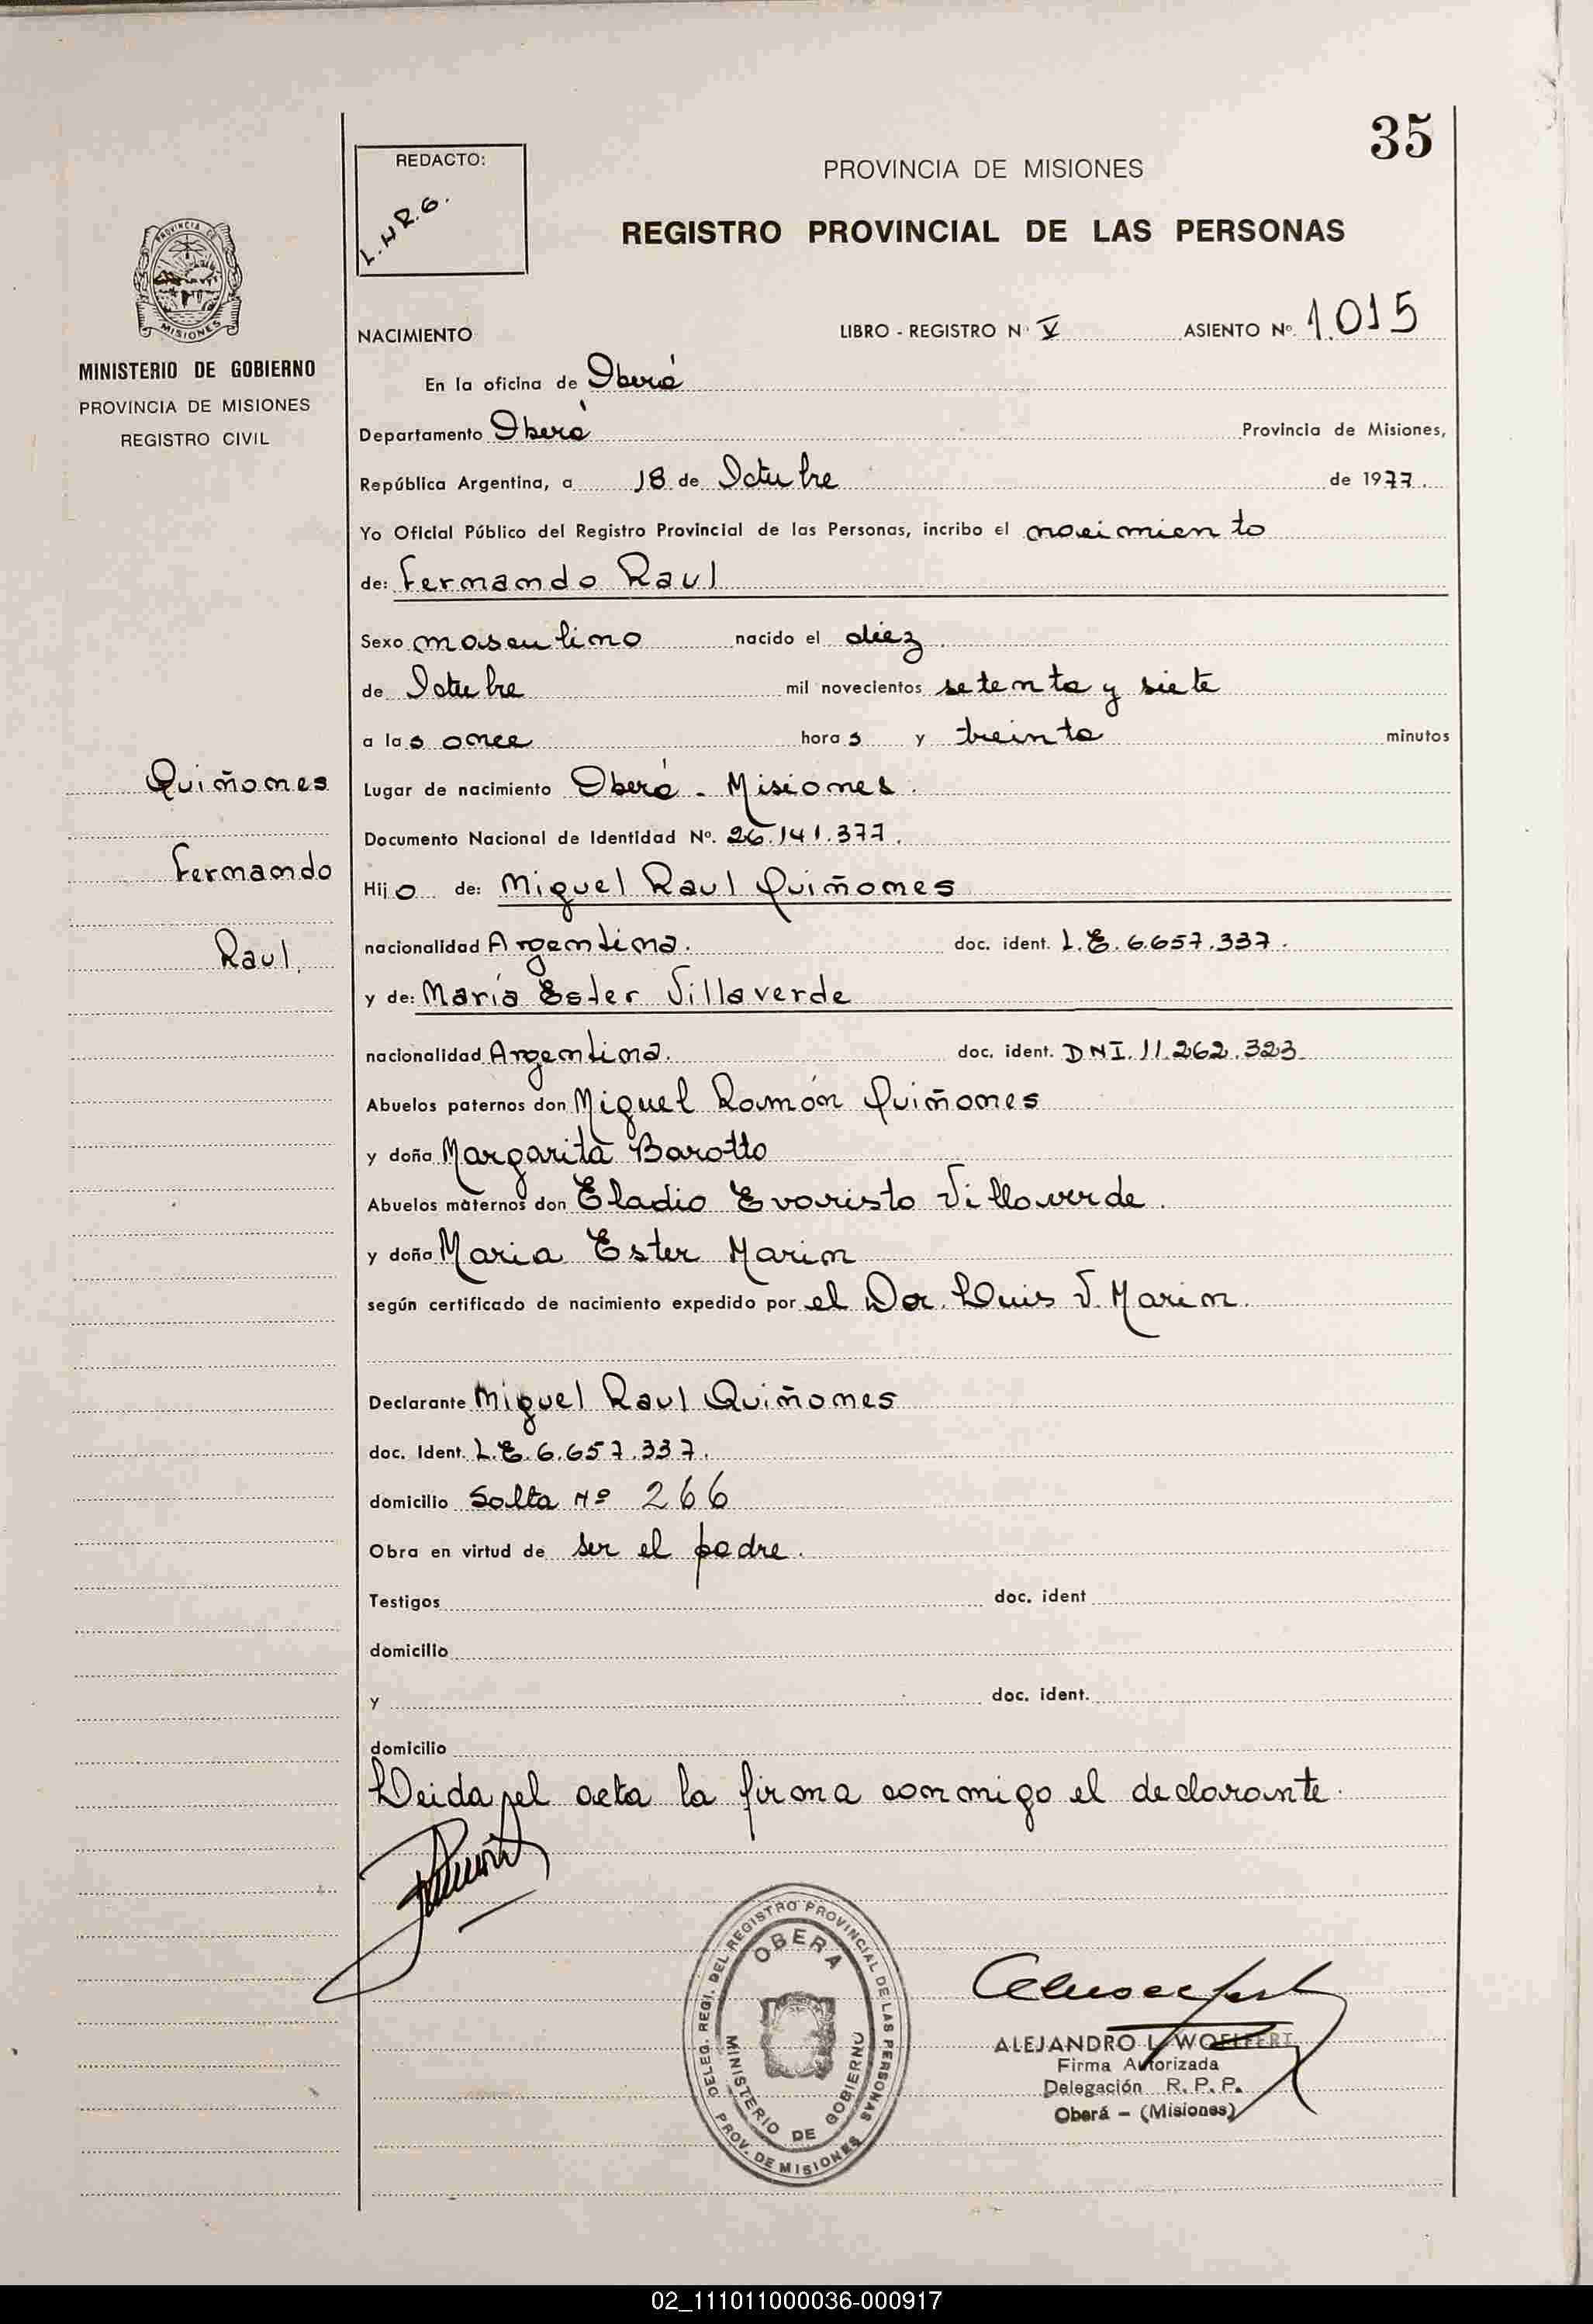 35
REDACTO:
L.H.R.G.
PROVINCIA DE MISIONES
REGISTRO PROVINCIAL DE LAS PERSONAS
PROVINCIA DE
MISIONES
MINISTERIO DE GOBIERNO
PROVINCIA DE MISIONES
REGISTRO CIVIL
NACIMIENTO LIBRO - REGISTRO N° V ASIENTO Nº. 1.015
En la oficina de Oberá
Departamento Oberá Provincia de Misiones,
República Argentina, a 18 de Octubre de 1977.
Yo Oficial Público del Registro Provincial de las Personas, incribo el nacimiento
de: Fernando Raul
Sexo masculino nacido el diez
de Octubre mil novecientos setenta y siete
a las once horas y treinta minutos
Quiñones
Fernando
Raul.
Lugar de nacimiento Oberá - Misiones.
Documento Nacional de Identidad Nº. 26.141.377.
Hijo de: Miguel Raul Quiñones
nacionalidad Argentina. doc. ident. L.E. 6.657.337.
y de: María Ester Villaverde
nacionalidad Argentina. doc. ident. DNI. 11.262.323
Abuelos paternos don Miguel Ramón Quiñones
y doña Margarita Barotto
Abuelos maternos don Eladio Evaristo Villaverde.
y doña Maria Ester Marin
según certificado de nacimiento expedido por el Dor. Luis V. Marin.
Declarante Miguel Raul Quiñones
doc. Ident. L.E. 6.657.337.
domicilio Salta Nº 266
Obra en virtud de ser el padre.
Testigos doc. ident
domicilio
y doc. ident.
domicilio
Leida el acta la firma conmigo el declarante.
DELEG. REGI. DEL REGISTRO PROVINCIAL DE LAS PERSONAS
OBERA
MINISTERIO DE GOBIERNO
PROV. DE MISIONES
ALEJANDRO L. WOELFERT
Firma Autorizada
Delegación R. P. P.
Oberá - (Misiones)
02_111011000036-000917